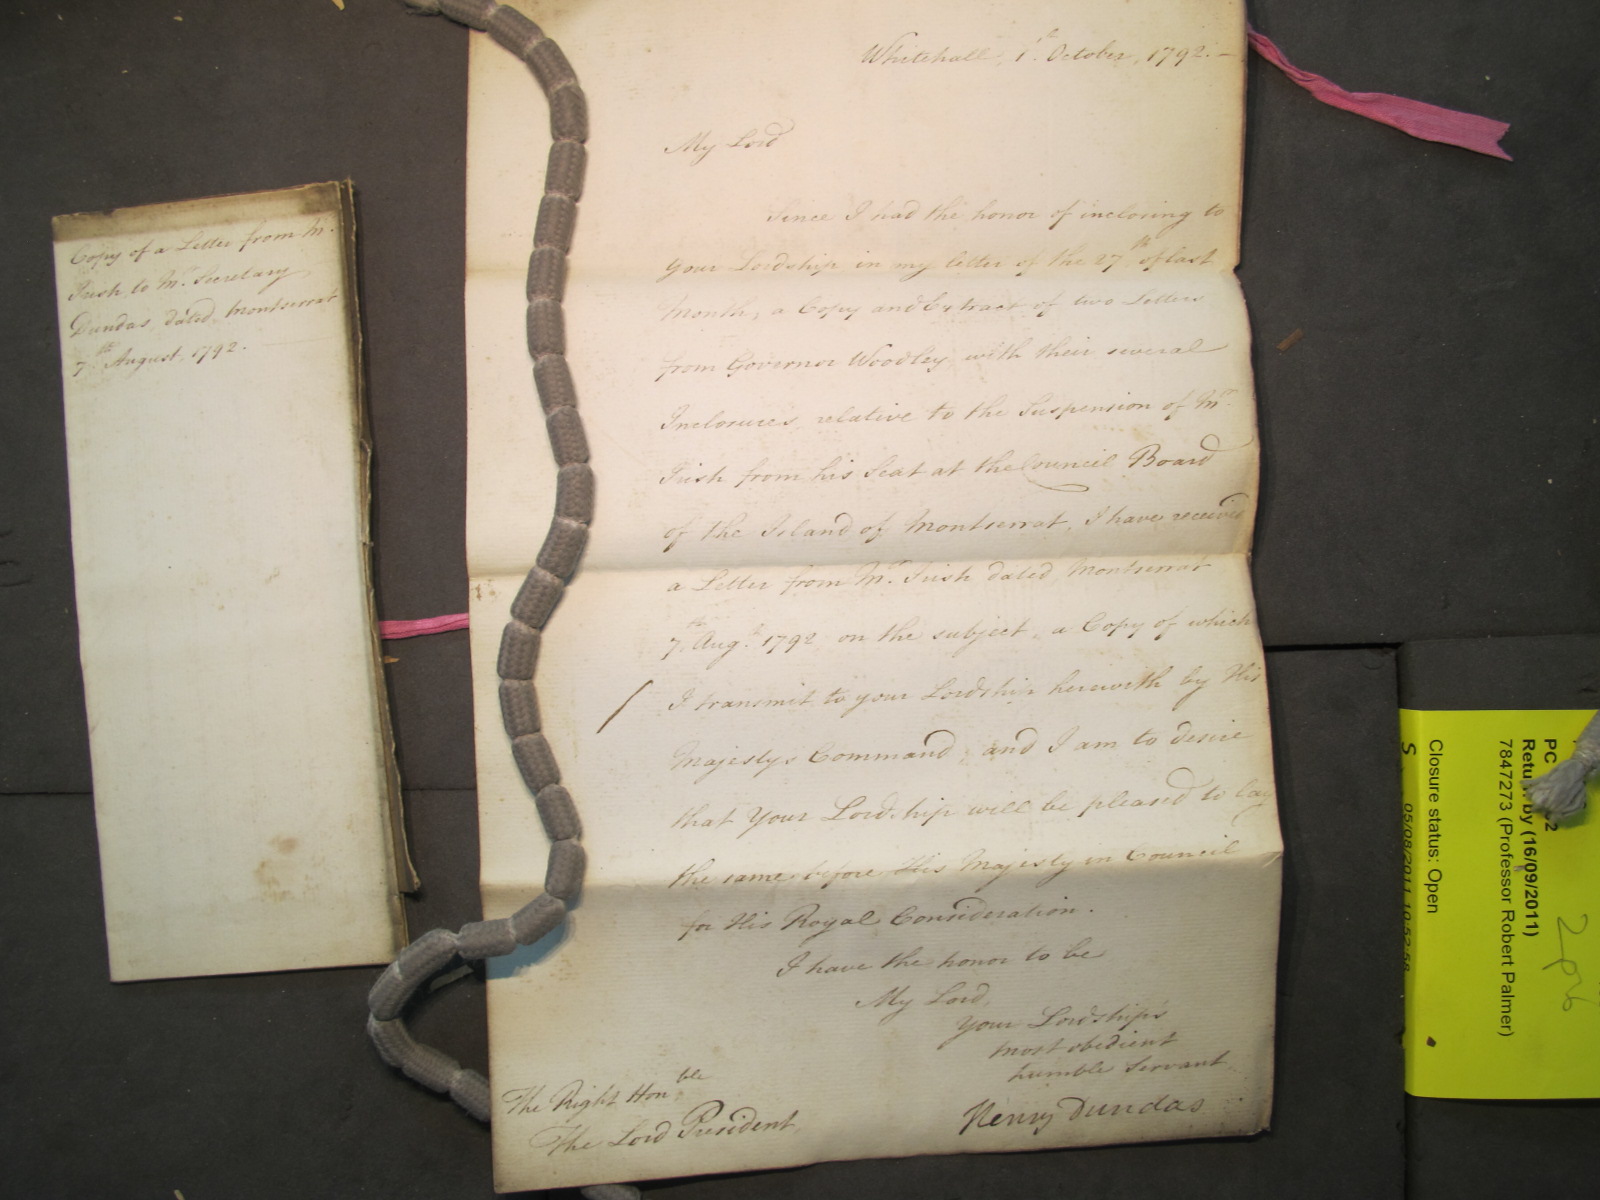 Copy of a Letter from Mr.
Irish to Mr. Secretary
Dundas, dated Montserrat
7th August, 1792.
Whitehall, 1st. October, 1792.-
My Lord
Since I had the honor of inclosing to
your Lordship in my letter of the 27th of last
Month, a Copy and Extract of two Letters
from Governor Woodley, with their several
Inclosures, relative to the Suspension of Mr.
Irish from his Seat at the Council Board
of the Island of Montserrat, I have received
a Letter from Mr. Irish dated, Montserrat
7th. Augt. 1792 on the subject, a Copy of which
I transmit to your Lordship herewith by His
Majestys Command, and I am to desire
that Your Lordship will be pleased to lay
the same before His Majesty in Council
for His Royal Consideration.
I have the honor to be
My Lord,
Your Lordship's
most obedient
humble Servant,
Henry Dundas
The Right Honble
The Lord President,
PC
Return by (16/09/2011)
7847273 (Professor Robert Palmer)
Closure status: Open
S 05/08/2011